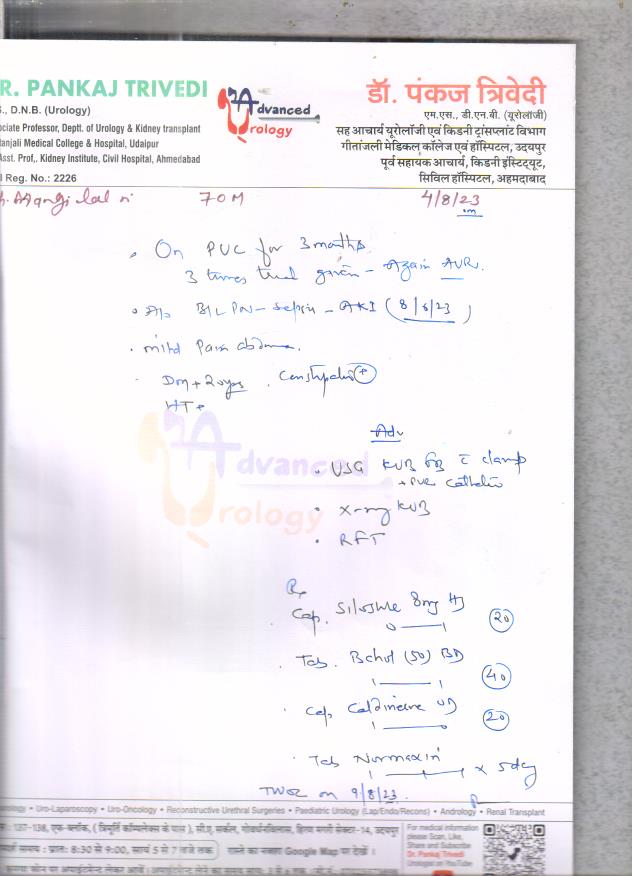 R. PANKAJ TRIVEDI
., D.N.B. (Urology)
ciate Professor, Deptt. of Urology & Kidney transplant
tanjali Medical College & Hospital, Udaipur
Asst. Prof., Kidney Institute, Civil Hospital, Ahmedabad
l Reg. No.: 2226
Advanced
Urology
डॉ. पंकज त्रिवेदी
एम.एस., डी.एन.बी. (यूरोलॉजी)
सह आचार्य यूरोलॉजी एवं किडनी ट्रांसप्लांट विभाग
गीतांजली मेडिकल कॉलेज एवं हॉस्पिटल, उदयपुर
पूर्व सहायक आचार्य, किडनी इंस्टिट्यूट,
सिविल हॉस्पिटल, अहमदाबाद
Mangi lal 70M 4/8/23
On PUC for 3 months
3 times trial given - Again AUR.
H/o B/L PN - sepsis - AKI (8/6/23)
mild Pain abdomen.
DM + 20 yrs . Constipation +
HT +
Adv
USG KUB c clamp
+ PVR catheter
X-ray KUB
RFT
Advanced
Urology
Rx
Cap. Silosure 8mg HS
0 1 20
Tab. Bchol (50) BD
1 1 40
Cap. OD
1 0 20
Tab Normaxin x 5 day
TWOC on 9/8/23.
rology • Uro-Laparoscopy • Uro-Oncology • Reconstructive Urethral Surgeries • Paediatric Urology (Lap/Endo/Recons) • Andrology • Renal Transplant
: 137-138, एफ-ब्लॉक, ( त्रिमूर्ति कॉम्पलेक्स के पास ), सी.ए. सर्कल, गोवर्धनविलास, हिरण मगरी सेक्टर-14, उदयपुर
सम्पर्क समय : प्रातः 8:30 से 9:00, सायं 5 से 7 बजे तक रास्ते का नक्शा Google Map पर देखें ।
For medical information
please Scan, Like,
Share and Subscribe
Dr. Pankaj Trivedi
Urologist on YouTube